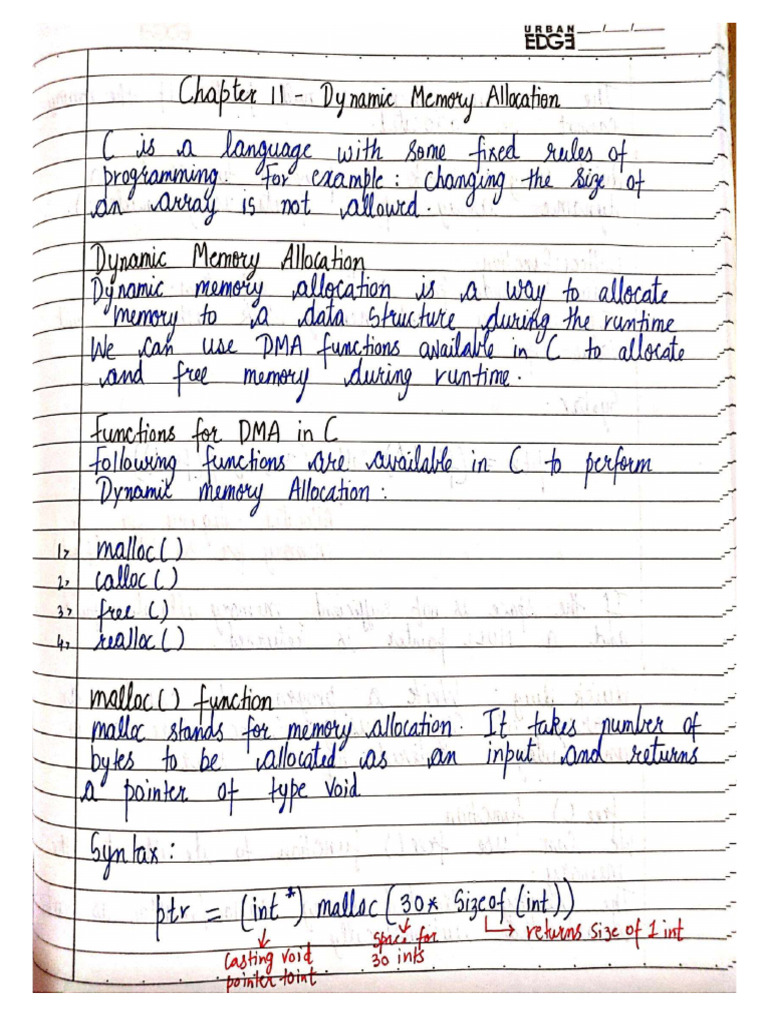 URBAN
EDGE
Chapter 11 - Dynamic Memory Allocation
C is a language with some fixed rules of
programming. For example: changing the size of
an array is not allowed.
Dynamic Memory Allocation
Dynamic memory allocation is a way to allocate
memory to a data structure during the runtime
We can use DMA functions available in C to allocate
and free memory during runtime.
Functions for DMA in C
following functions are available in C to perform
Dynamic memory Allocation:
1> malloc()
2> calloc()
3> free ()
4> realloc()
malloc() function
malloc stands for memory allocation. It takes number of
bytes to be allocated as an input and returns
a pointer of type void
Syntax:
ptr = (int*) malloc(30* Sizeof(int))
Casting void
pointer toint
Space for
30 ints
returns Size of 1 int